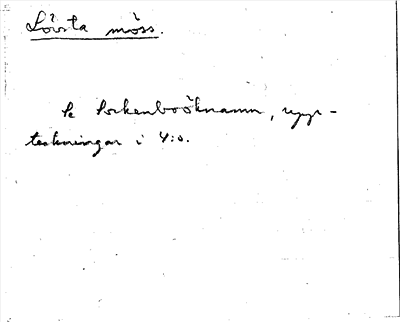 Lövsta möss.
Se Sockenboöknamn, upp-
teckningar i 4:o.